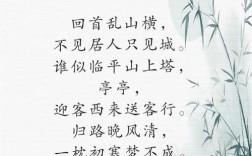 回首乱山横，
不见居人只见城。
谁似临平山上塔，
亭亭，
迎客西来送客行。
归路晚风清，
一枕初寒梦不成。